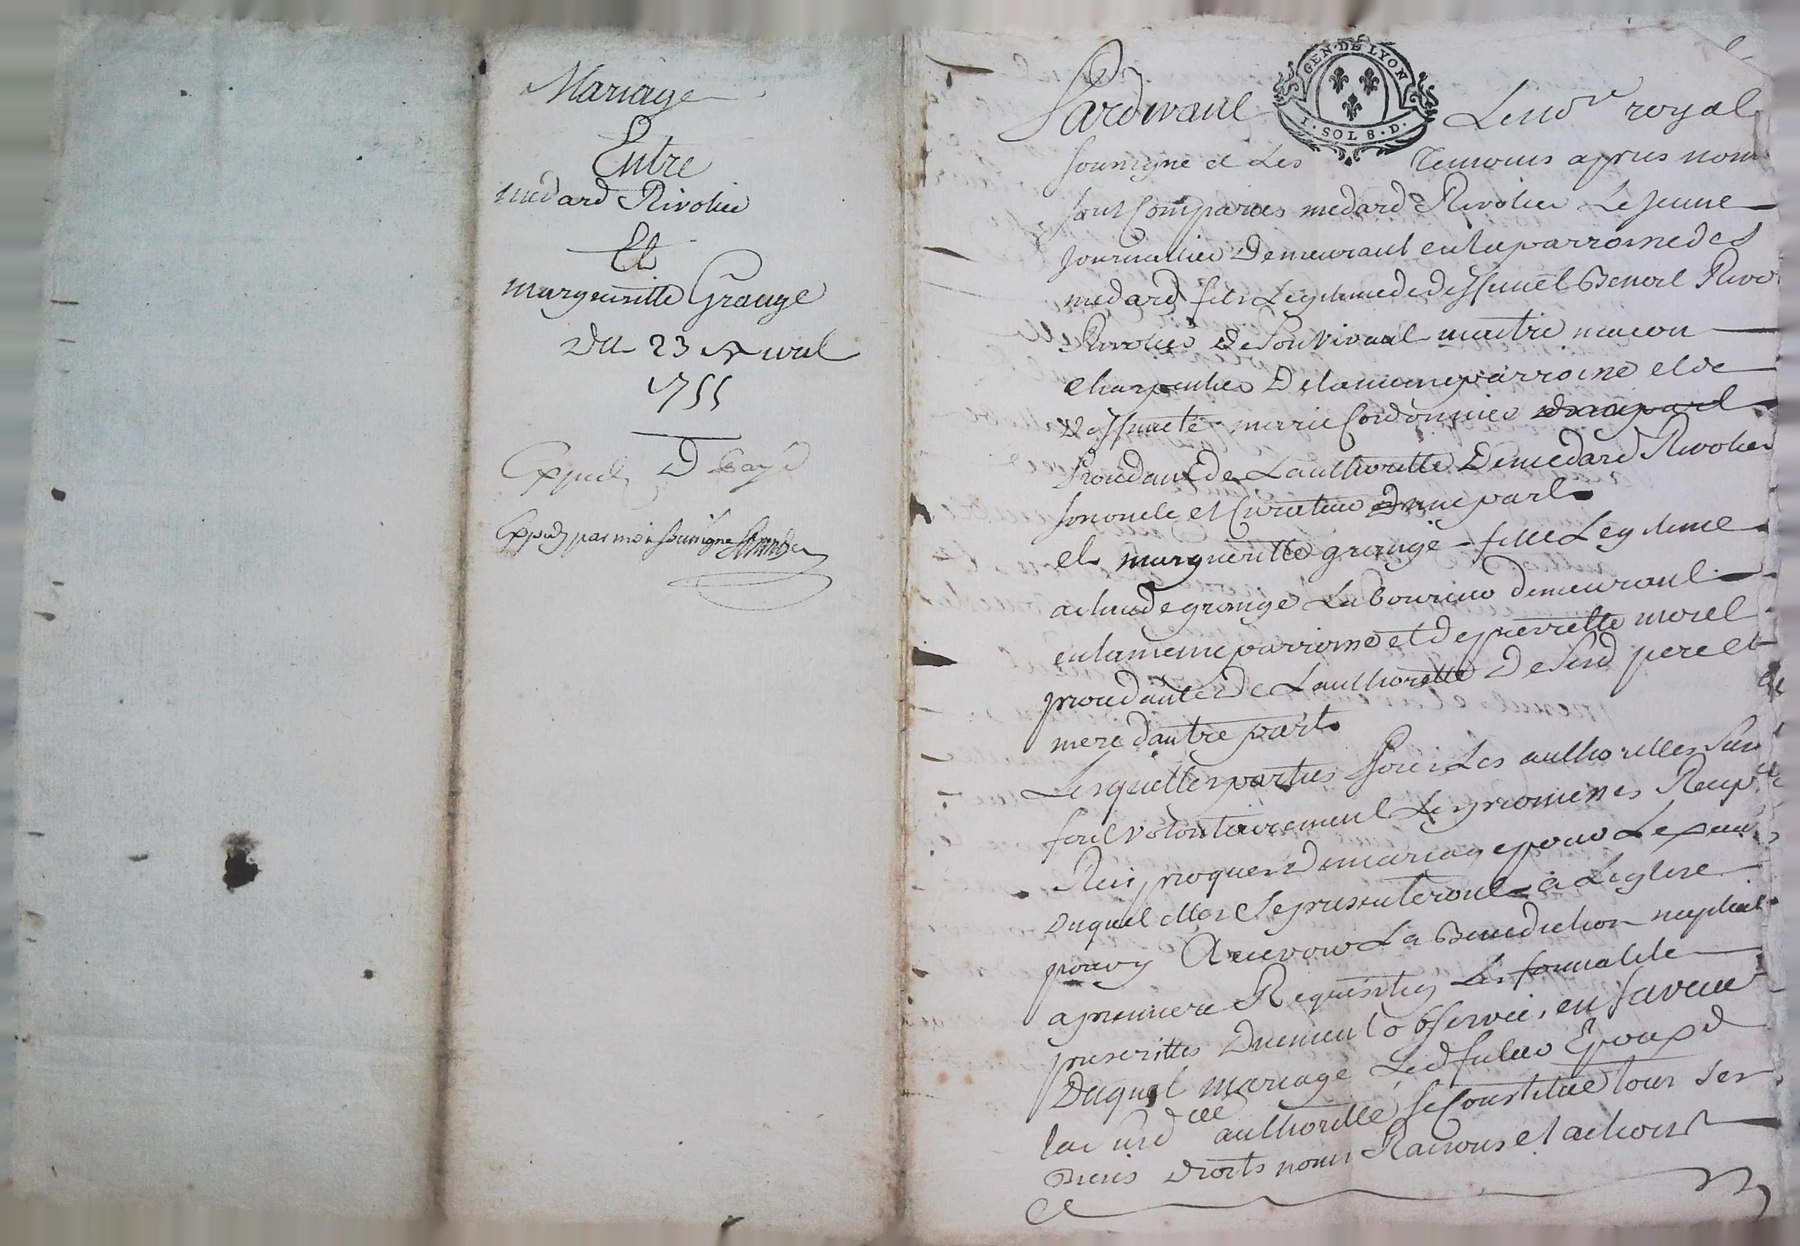 Mariage
Entre
medard Rivolier
Et
margueritte Grange
Du 23 Avril
1755
Expedié Payé
Expedié par moi soussigné
GEN. DE LYON
1. SOL 8. D.
Pardevant Le no.re royal
soussigné et Les Temoins apres nom
sont Comparus medard Rivolier Le Jeune
Journallier Demeurant en la parroisse de St
medard fils Legitime de deffunct Benoit Rivo
Rivolier De Son Vivant maitre macon
Charpentier De la meme parroisse et de
Deffuncte marie Cordonnier d'une part
procedant de L'authoritté De medard Rivolier
son oncle et Curateur D'une part
et margueritte grange fille Legitime
a claude grange Laboureur demeurant
en la meme parroisse et de pierrette morel
procedante De L'authoritté De Sesd pere et
mere d'autre part
Lesquelles parties Sous Les authorittes Sus
font volontairement Les promesses Recip
Reciproques De mariage pour Le
Duquel elles Se presenteront a L'eglise
pour y Recevoir La Benediction nuptial
a premiere Requisition Les formalité
prescrittes Duement observée, en faveur
Duquel mariage Led futur Epoux de
lad authoritté se Constitue tous ses
Biens droits noms Raisons et actions